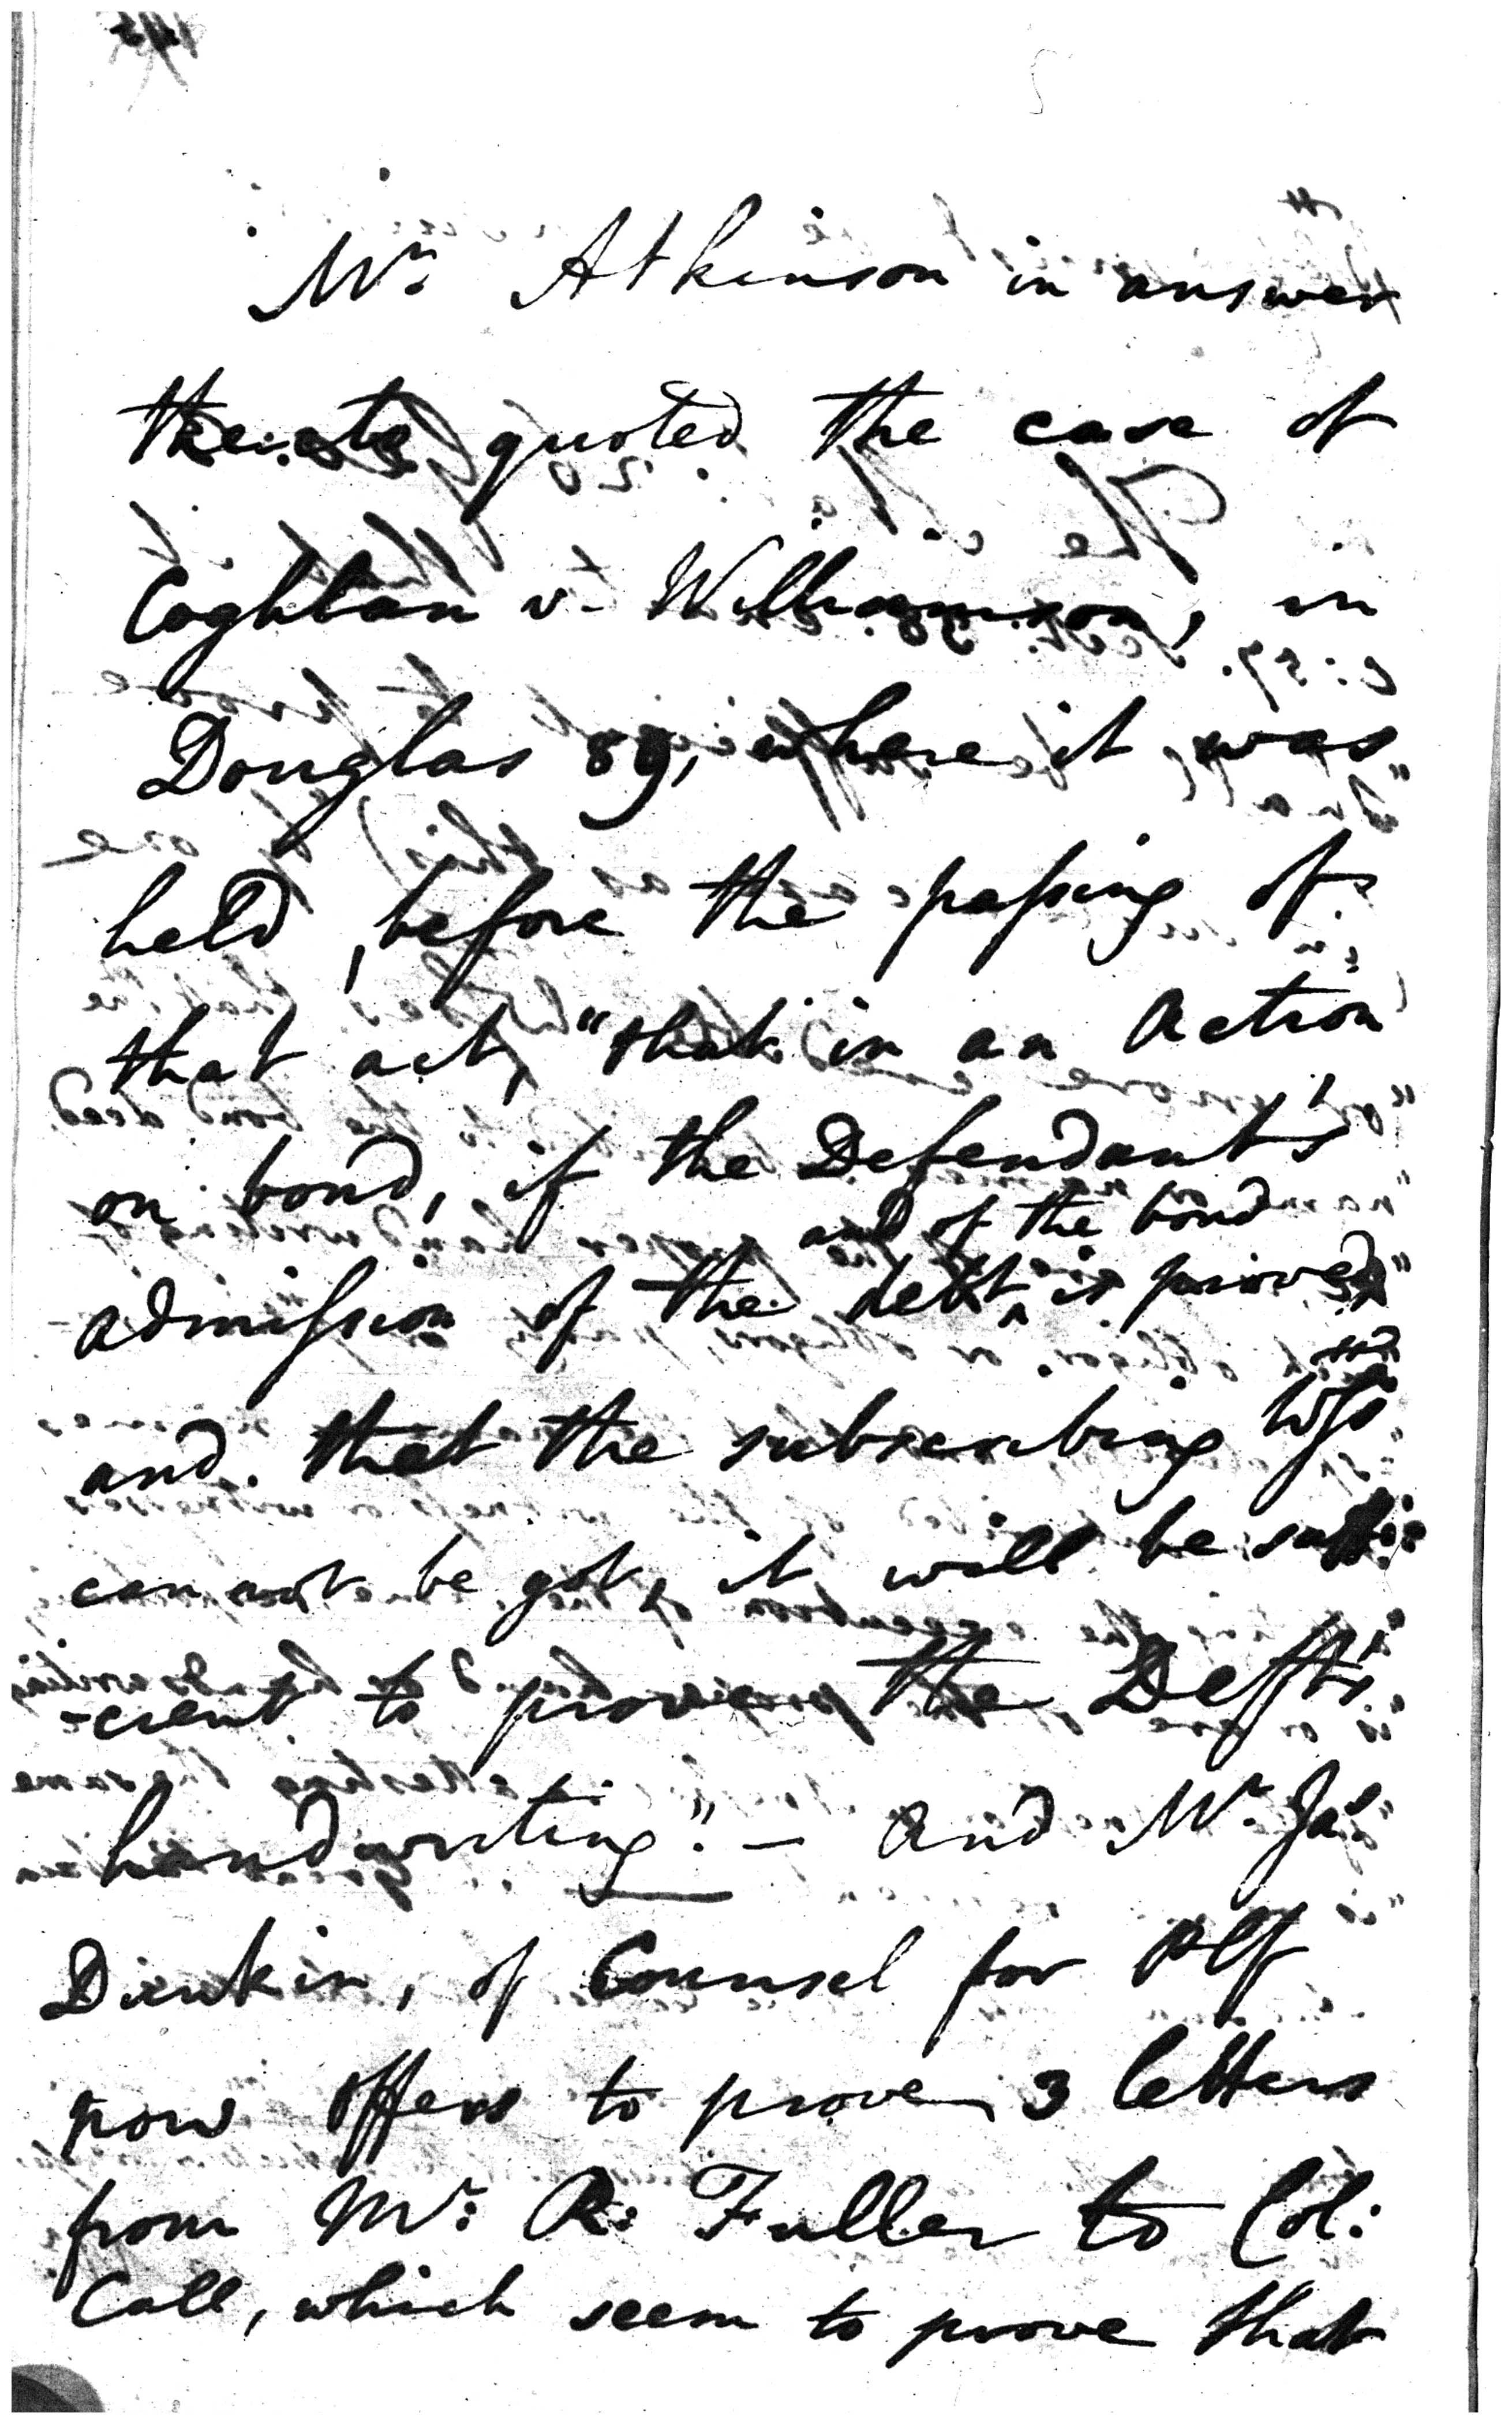 Mr. Atkinson in answer
thereto quoted the case of
Coghlan v. Williamson, in
Douglas 89, where it was
held, before the passing of
that act, "that in an action
on bond, if the Defendant's
and of the bond
admission of the debt ^ is proved
and that the subscribing Wss
cannot be got, it will be suffi-
-cient to prove the Defts
handwriting." — And Mr. Jas
Dunkin, of Counsel for Plf
now offers to prove 3 letters
from Mr: R: Fuller to Col:
Call, which seem to prove that